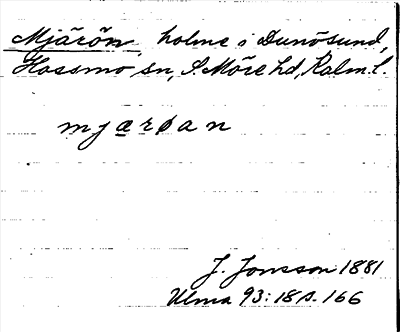 Mjärön, holme i Dunösund,
Hossmo sn, S. Möre hd, Kalm. l.
mjærøan
J. Jonsson 1881
Ulma 93:18 s. 166